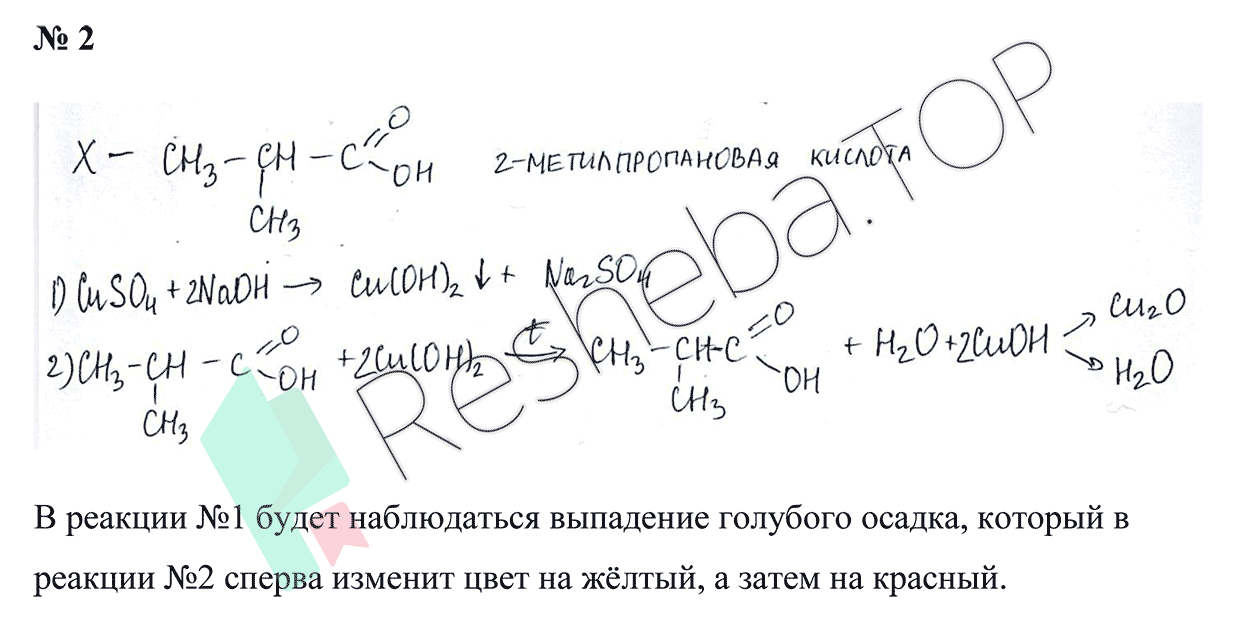 № 2
X – CH₃ – CH – C =O – OH 2-МЕТИЛПРОПАНОВАЯ КИСЛОТА
CH₃
1) CuSO₄ + 2NaOH → Cu(OH)₂↓ + Na₂SO₄
2) CH₃ – CH – C =O – OH + 2Cu(OH)₂ t→ CH₃ – CH – C =O – OH + H₂O + 2CuOH → Cu₂O → H₂O
CH₃ CH₃
Resheba.TOP
В реакции №1 будет наблюдаться выпадение голубого осадка, который в
реакции №2 сперва изменит цвет на жёлтый, а затем на красный.